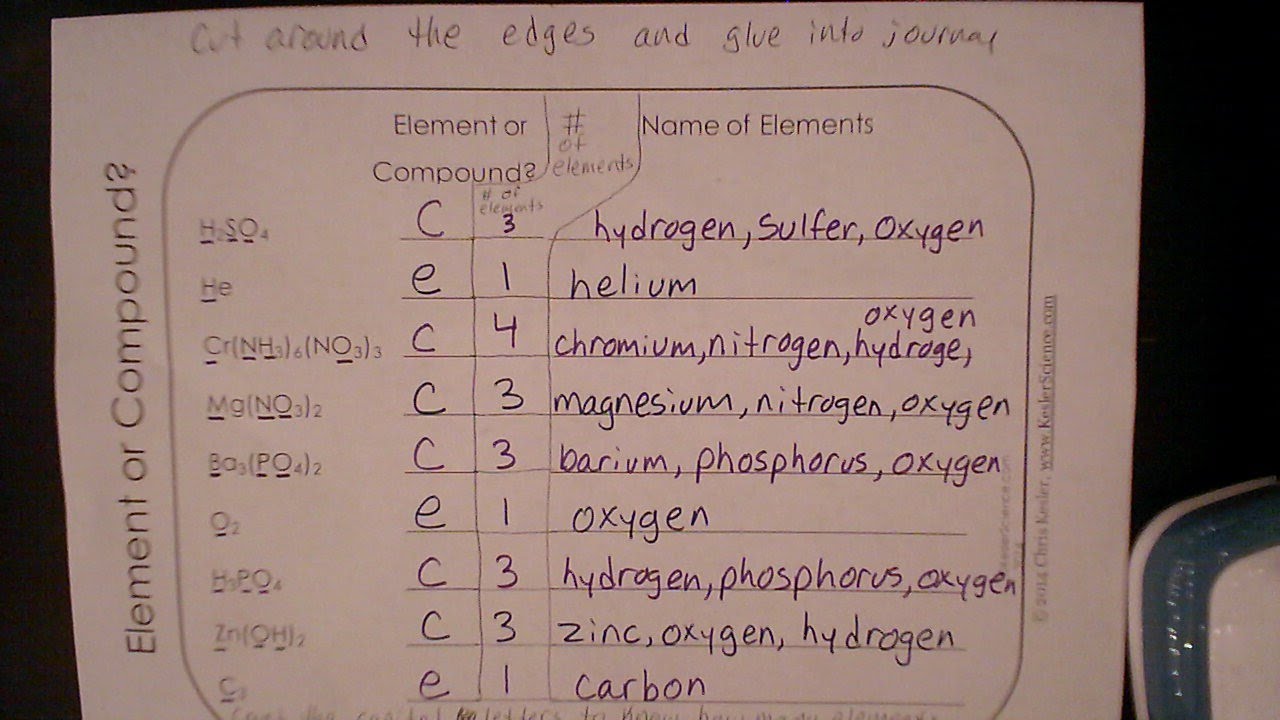 Cut around the edges and glue into journal
Element or Compound?
Element or Compound? # of elements Name of Elements
# of elements
H₂SO₄ C 3 hydrogen, Sulfer, Oxygen
He e 1 helium
Cr(NH₃)₆(NO₃)₃ C 4 chromium, nitrogen, hydroge, oxygen
Mg(NO₃)₂ C 3 magnesium, nitrogen, oxygen
Ba₃(PO₄)₂ C 3 barium, phosphorus, oxygen
O₂ e 1 oxygen
H₃PO₄ C 3 hydrogen, phosphorus, oxygen
Zn(OH)₂ C 3 zinc, oxygen, hydrogen
C e 1 carbon
the capital letters to know how many elements
© 2014 Chris Kesler, www.KeslerScience.com